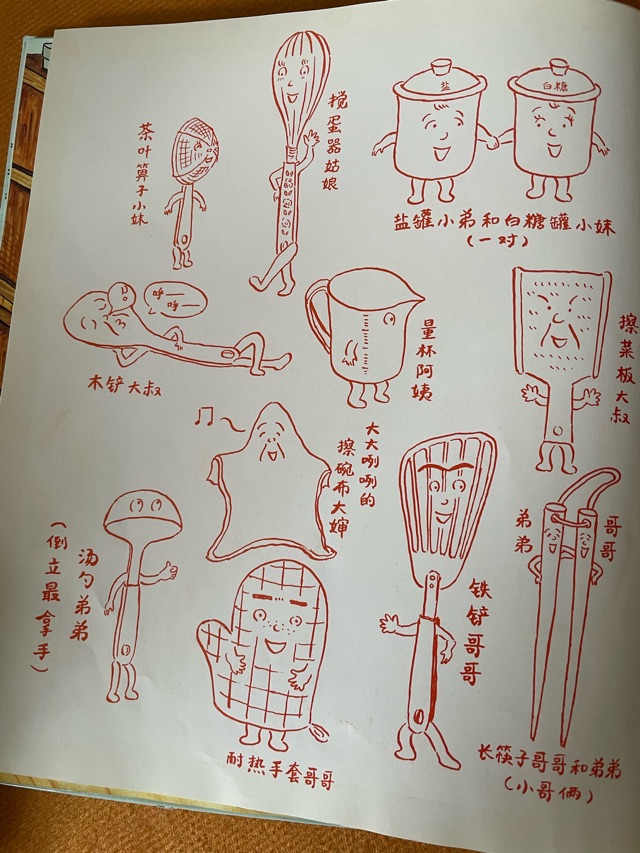 茶叶箅子小妹
搅蛋器姑娘
盐
白糖
盐罐小弟和白糖罐小妹
(一对)
呼——
呼——
木铲大叔
量杯阿姨
擦菜板大叔
大大咧咧的
擦碗布大婶
汤勺弟弟
(倒立最拿手)
耐热手套哥哥
铁铲哥哥
弟弟
哥哥
长筷子哥哥和弟弟
(小哥俩)